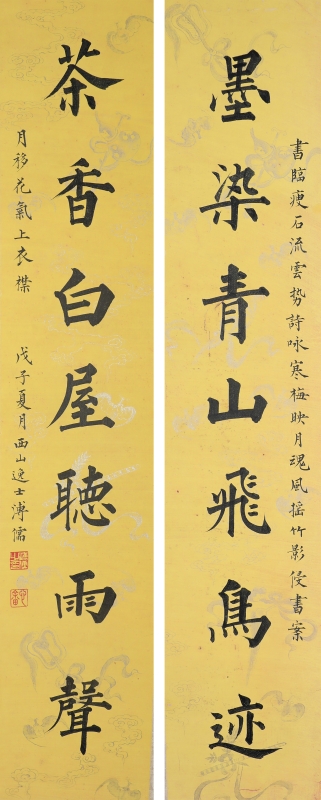 書臨瘦石流雲势詩咏寒梅映月魂風揺竹影侵書案
墨染青山飛鳥迹
茶香白屋聽雨聲
月移花氣上衣襟
戊子夏月西山逸士溥儒